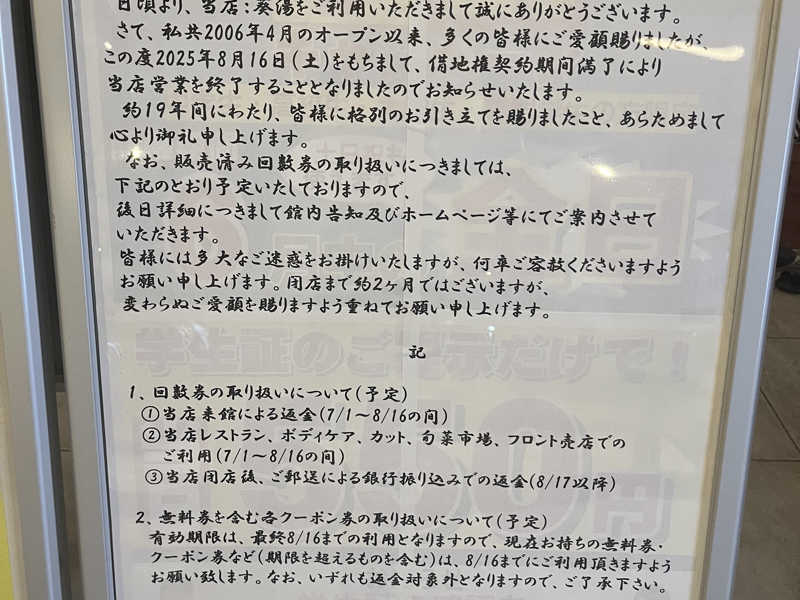 日頃より、当店:葵湯をご利用いただきまして誠にありがとうございます。
さて、私共2006年4月のオープン以来、多くの皆様にご愛顧賜りましたが、
この度2025年8月16日(土)をもちまして、借地権契約期間満了により
当店営業を終了することとなりましたのでお知らせいたします。
約19年間にわたり、皆様に格別のお引き立てを賜りましたこと、あらためまして
心より御礼申し上げます。
なお、販売済み回数券の取り扱いにつきましては、
下記のとおり予定いたしておりますので、
後日詳細につきまして館内告知及びホームページ等にてご案内させて
いただきます。
皆様には多大なご迷惑をお掛けいたしますが、何卒ご容赦くださいますよう
お願い申し上げます。閉店まで約2ヶ月ではございますが、
変わらぬご愛顧を賜りますよう重ねてお願い申し上げます。
記
1、回数券の取り扱いについて(予定)
①当店来館による返金(7/1~8/16の間)
②当店レストラン、ボディケア、カット、旬菜市場、フロント売店での
ご利用(7/1~8/16の間)
③当店閉店後、ご郵送による銀行振り込みでの返金(8/17以降)
2、無料券を含む各クーポン券の取り扱いについて(予定)
有効期限は、最終8/16までの利用となりますので、現在お持ちの無料券・
クーポン券など(期限を超えるものを含む)は、8/16までにご利用頂きますよう
お願い致します。なお、いずれも返金対象外となりますので、ご了承下さい。
学生証のご提示だけで!